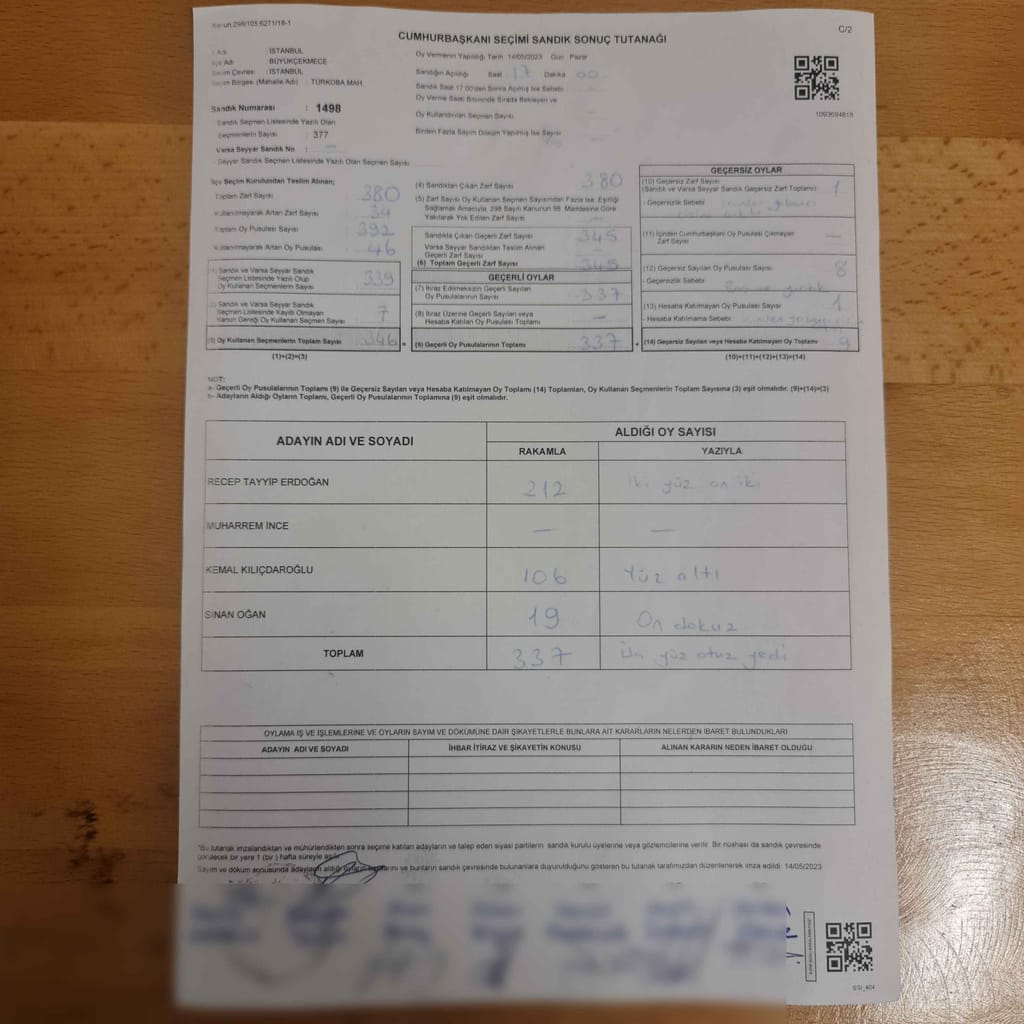 Kanun:298/105 6271/18-1
C/2
CUMHURBAŞKANI SEÇİMİ SANDIK SONUÇ TUTANAĞI
İl Adı : İSTANBUL
İlçe Adı : BÜYÜKÇEKMECE
Seçim Çevresi : İSTANBUL
Seçim Bölgesi (Mahalle Adı) : TÜRKOBA MAH.
Sandık Numarası : 1498
Sandık Seçmen Listesinde Yazılı Olan
Seçmenlerin Sayısı : 377
Varsa Seyyar Sandık No : —
Seyyar Sandık Seçmen Listesinde Yazılı Olan Seçmen Sayısı
Oy Vermenin Yapıldığı Tarih 14/05/2023 Gün Pazar
Sandığın Açıldığı Saat 17 Dakika 00
Sandık Saat 17:00'den Sonra Açılmış İse Sebebi
Oy Verme Saati Bitiminde Sırada Bekleyen ve
Oy Kullandırılan Seçmen Sayısı
Birden Fazla Sayım Döküm Yapılmış İse Sayısı
1093694819
İlçe Seçim Kurulundan Teslim Alınan;
Toplam Zarf Sayısı 380
Kullanılmayarak Artan Zarf Sayısı 34
Toplam Oy Pusulası Sayısı 392
Kullanılmayarak Artan Oy Pusulası 46
(1) Sandık ve Varsa Seyyar Sandık
Seçmen Listesinde Yazılı Olup
Oy Kullanan Seçmenlerin Sayısı 339
(2) Sandık ve Varsa Seyyar Sandık
Seçmen Listesinde Kayıtlı Olmayan
Kanun Gereği Oy Kullanan Seçmen Sayısı 7
(3) Oy Kullanan Seçmenlerin Toplam Sayısı 346 =
(1)+(2)=(3)
(4) Sandıktan Çıkan Zarf Sayısı 380
(5) Zarf Sayısı Oy Kullanan Seçmen Sayısından Fazla İse, Eşitliği
Sağlamak Amacıyla; 298 Sayılı Kanunun 98. Maddesine Göre
Yakılarak Yok Edilen Zarf Sayısı
Sandıkta Çıkan Geçerli Zarf Sayısı 345
Varsa Seyyar Sandıktan Teslim Alınan
Geçerli Zarf Sayısı —
(6) Toplam Geçerli Zarf Sayısı 345
GEÇERLİ OYLAR
(7) İtiraz Edilmeksizin Geçerli Sayılan
Oy Pusulalarının Sayısı 337
(8) İtiraz Üzerine Geçerli Sayılan veya
Hesaba Katılan Oy Pusulası Toplamı —
(9) Geçerli Oy Pusulalarının Toplamı 337 +
GEÇERSİZ OYLAR
(10) Geçersiz Zarf Sayısı
(Sandık ve Varsa Seyyar Sandık Geçersiz Zarf Toplamı) 1
- Geçersizlik Sebebi
(11) İçinden Cumhurbaşkanı Oy Pusulası Çıkmayan
Zarf Sayısı —
(12) Geçersiz Sayılan Oy Pusulası Sayısı 8
- Geçersizlik Sebebi
(13) Hesaba Katılmayan Oy Pusulası Sayısı 1
- Hesaba Katılmama Sebebi
(14) Geçersiz Sayılan veya Hesaba Katılmayan Oy Toplamı 9
(10)+(11)+(12)+(13)=(14)
NOT:
a- Geçerli Oy Pusulalarının Toplamı (9) ile Geçersiz Sayılan veya Hesaba Katılmayan Oy Toplamı (14) Toplamları, Oy Kullanan Seçmenlerin Toplam Sayısına (3) eşit olmalıdır. (9)+(14)=(3)
b- Adayların Aldığı Oyların Toplamı, Geçerli Oy Pusulalarının Toplamına (9) eşit olmalıdır.
ADAYIN ADI VE SOYADI ALDIĞI OY SAYISI
RAKAMLA YAZIYLA
RECEP TAYYİP ERDOĞAN 212 iki yüz on iki
MUHARREM İNCE — —
KEMAL KILIÇDAROĞLU 106 Yüz altı
SİNAN OĞAN 19 On dokuz
TOPLAM 337 Üç yüz otuz yedi
OYLAMA İŞ VE İŞLEMLERİNE VE OYLARIN SAYIM VE DÖKÜMÜNE DAİR ŞİKAYETLERLE BUNLARA AİT KARARLARIN NELERDEN İBARET BULUNDUKLARI
ADAYIN ADI VE SOYADI İHBAR İTİRAZ VE ŞİKAYETİN KONUSU ALINAN KARARIN NEDEN İBARET OLDUĞU
"Bu tutanak imzalandıktan ve mühürlendikten sonra seçime katılan adayların ve talep eden siyasi partilerin sandık kurulu üyelerine veya gözlemcilerine verilir. Bir nüshası da sandık çevresinde
görülecek bir yere 1 (bir) hafta süreyle asılır.
Sayım ve döküm sonucunda adayların aldığı oyların ve bunların sandık çevresinde bulunanlara duyurulduğunu gösteren bu tutanak tarafımızdan düzenlenerek imza edildi 14/05/2023
SSI_404